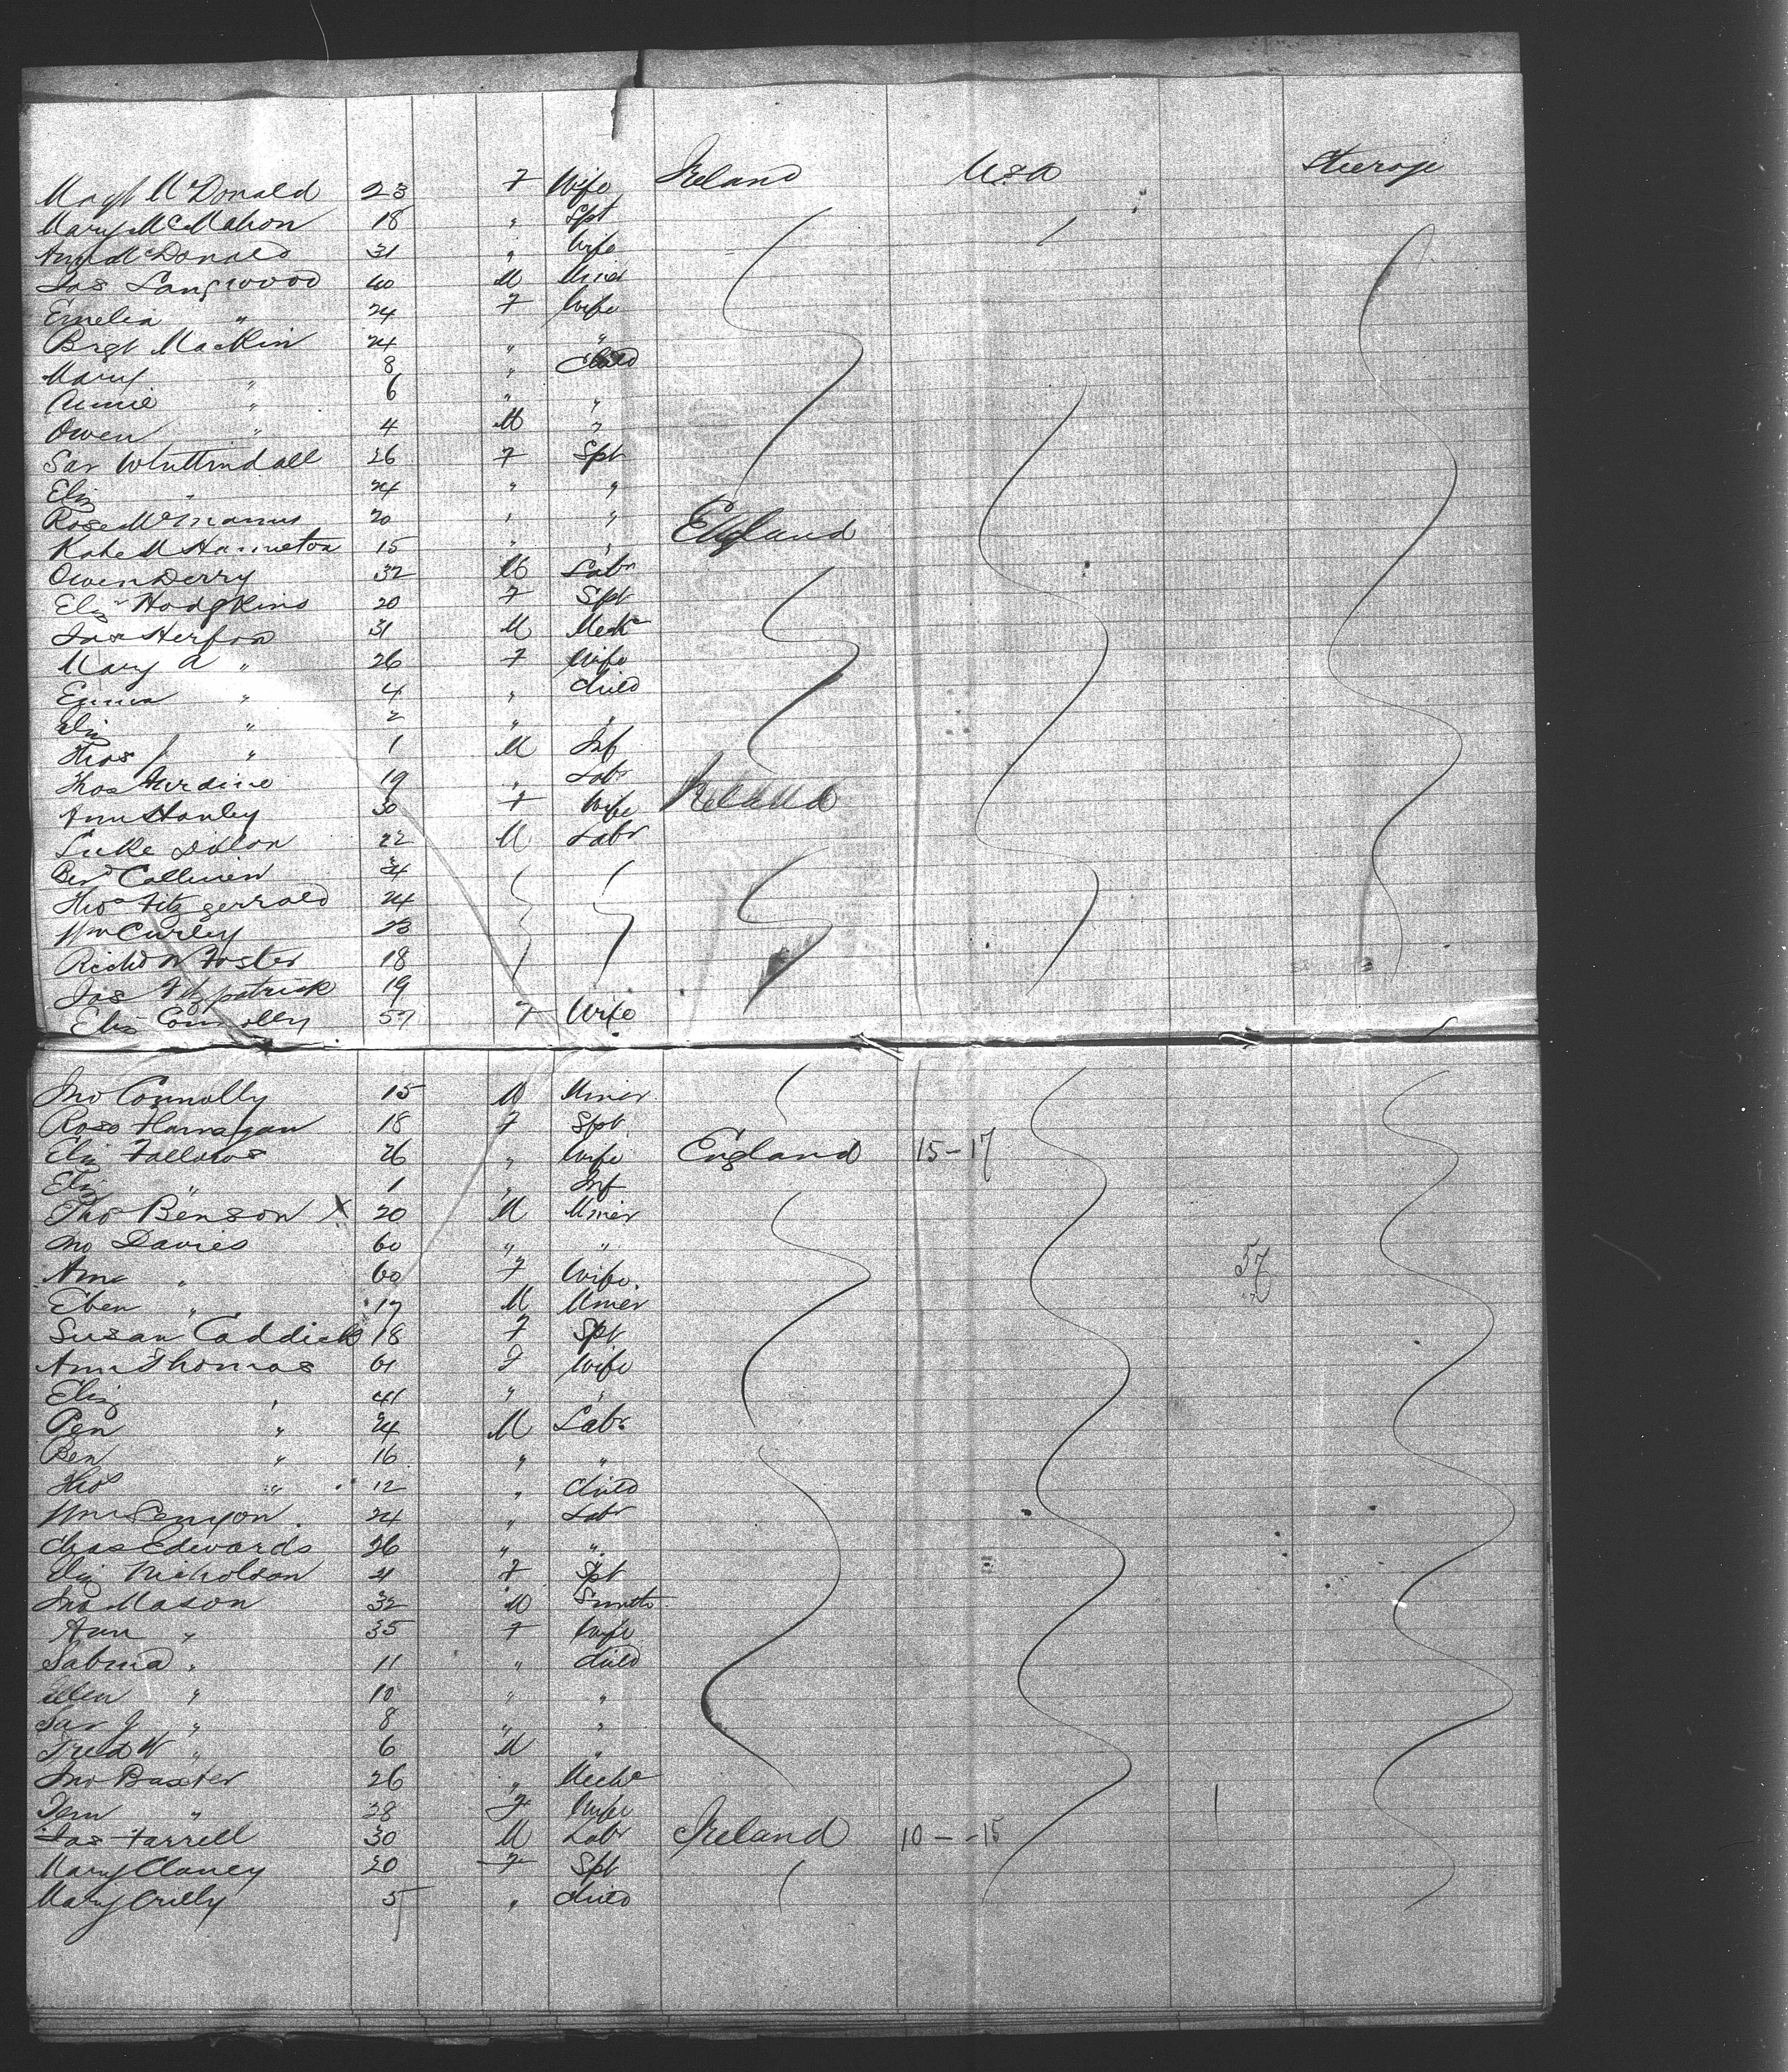 Margt McDonald 23 F Wife Ireland USA Steerage
Mary McMahon 18 " Spt
Ann McDonald 31 " Wife
Jas Langwood 40 M Miner
Emelia " 24 F Wife
Brgt Mackin 24 " "
Mary " 8 " Child
Annie " 6 " "
Owen " 4 M "
Sar Whittindall 26 F Spt
Eliz " 24 " "
Rose McManus 20 " " England
Kate M 15 " "
Owen Derry 32 M Labr
Eliz Hodgkins 20 F Spt
Jas 31 M Mech
Mary A " 26 F Wife
Emma " 4 " Child
Eliz " 2 " "
Thos " 1 M Inf
Thos 19 " Labr
Ann Hanley 30 F Wife Ireland
Luke Dolan 22 M Labr
Bend 34
Thos Fitzgerrald 24
Wm Curley 23
Richd W Foster 18
Jas Fitzpatrick 19
Eliz Connolly 57 F Wife
Jno Connolly 15 M Miner
Rose 18 F Spt
Eliz Fallows 26 " Wife England 15-17
Eliz " 1 " Inf
Tho Benson X 20 M Miner
Jno Davies 60 " "
Ann " 60 F Wife 57
Eben " 17 M Miner
Susan Caddick 18 F Spt
Ann Thomas 61 F Wife
Eliz " 41 " "
Pen " 24 M Labr
Ben " 16 " "
Tho " 12 " Child
Wm 24 " Labr
Chas Edwards 26 " "
Eliz Nicholson 21 F Spt
Jno Mason 32 M Smith
Ann " 35 F Wife
Sabina " 11 " Child
Ellen " 10 " "
Sar J " 8 " "
Fred W " 6 M "
Jno Baxter 26 " Mech
Jem " 28 F Wife
Jas Farrell 30 M Labr Ireland 10--15
Mary Clancy 20 F Spt
Mary Crilly 5 " Child